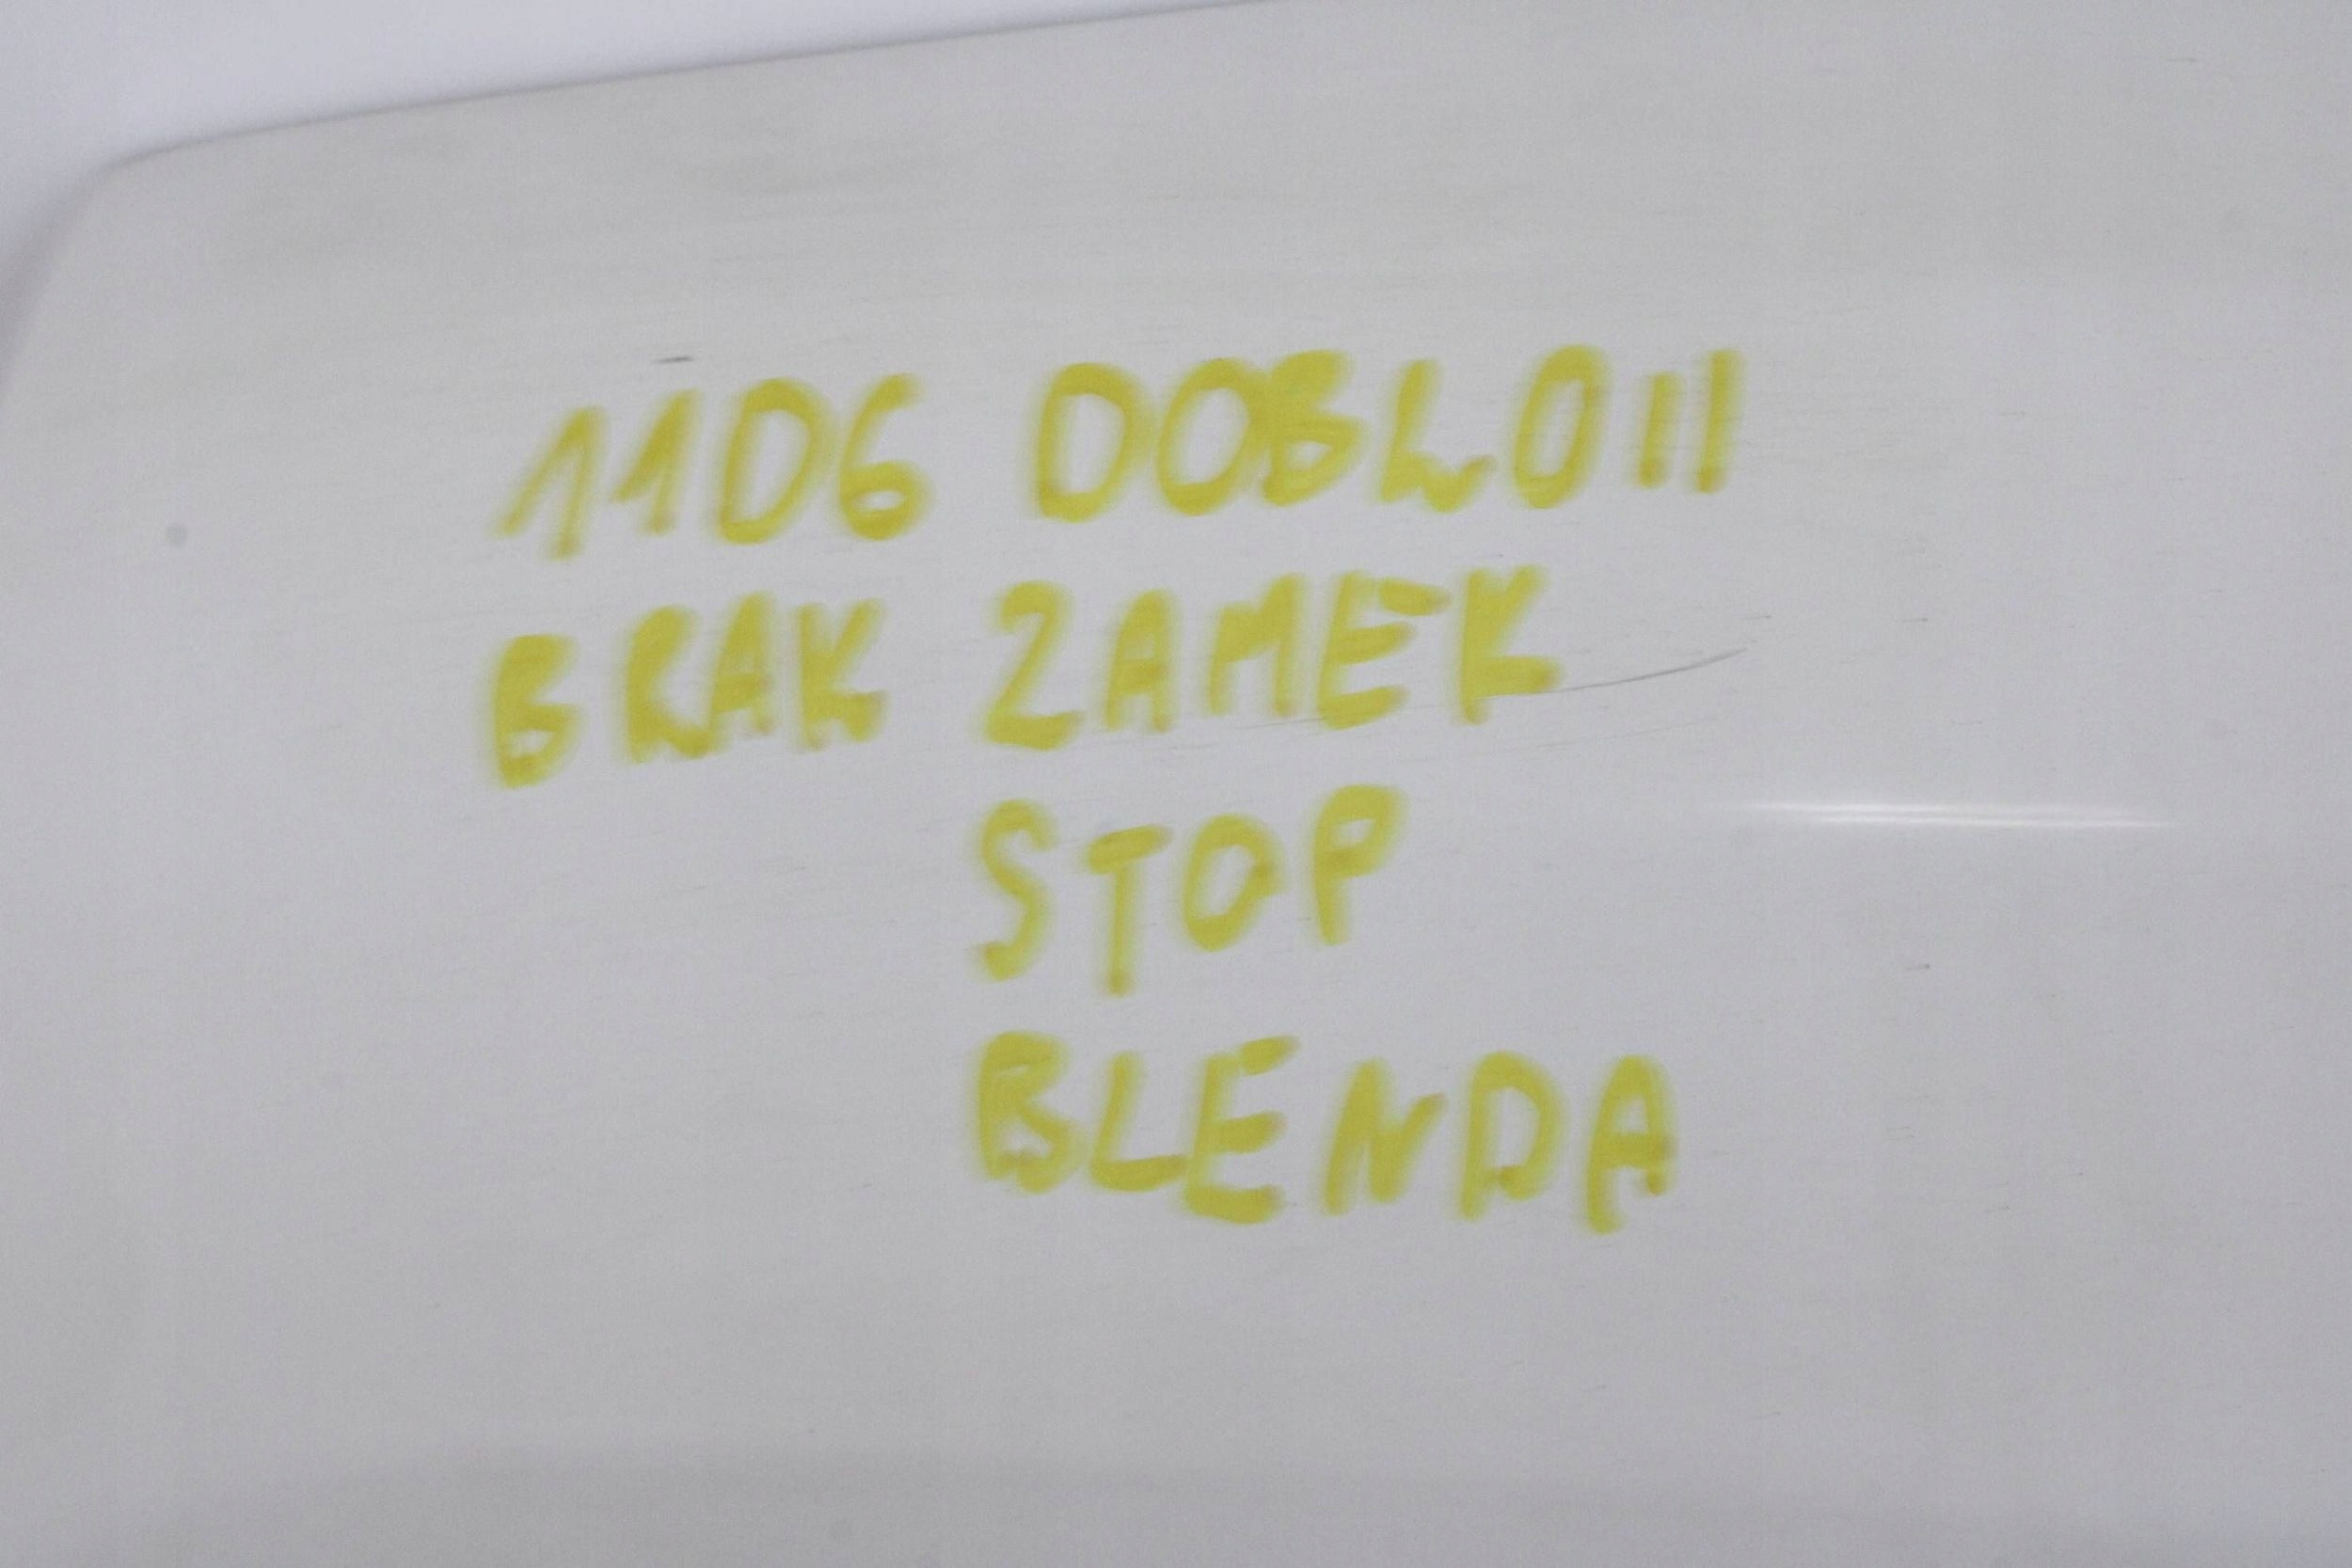 11D6 DOBLO II
BRAK ZAMEK
STOP
BLENDA